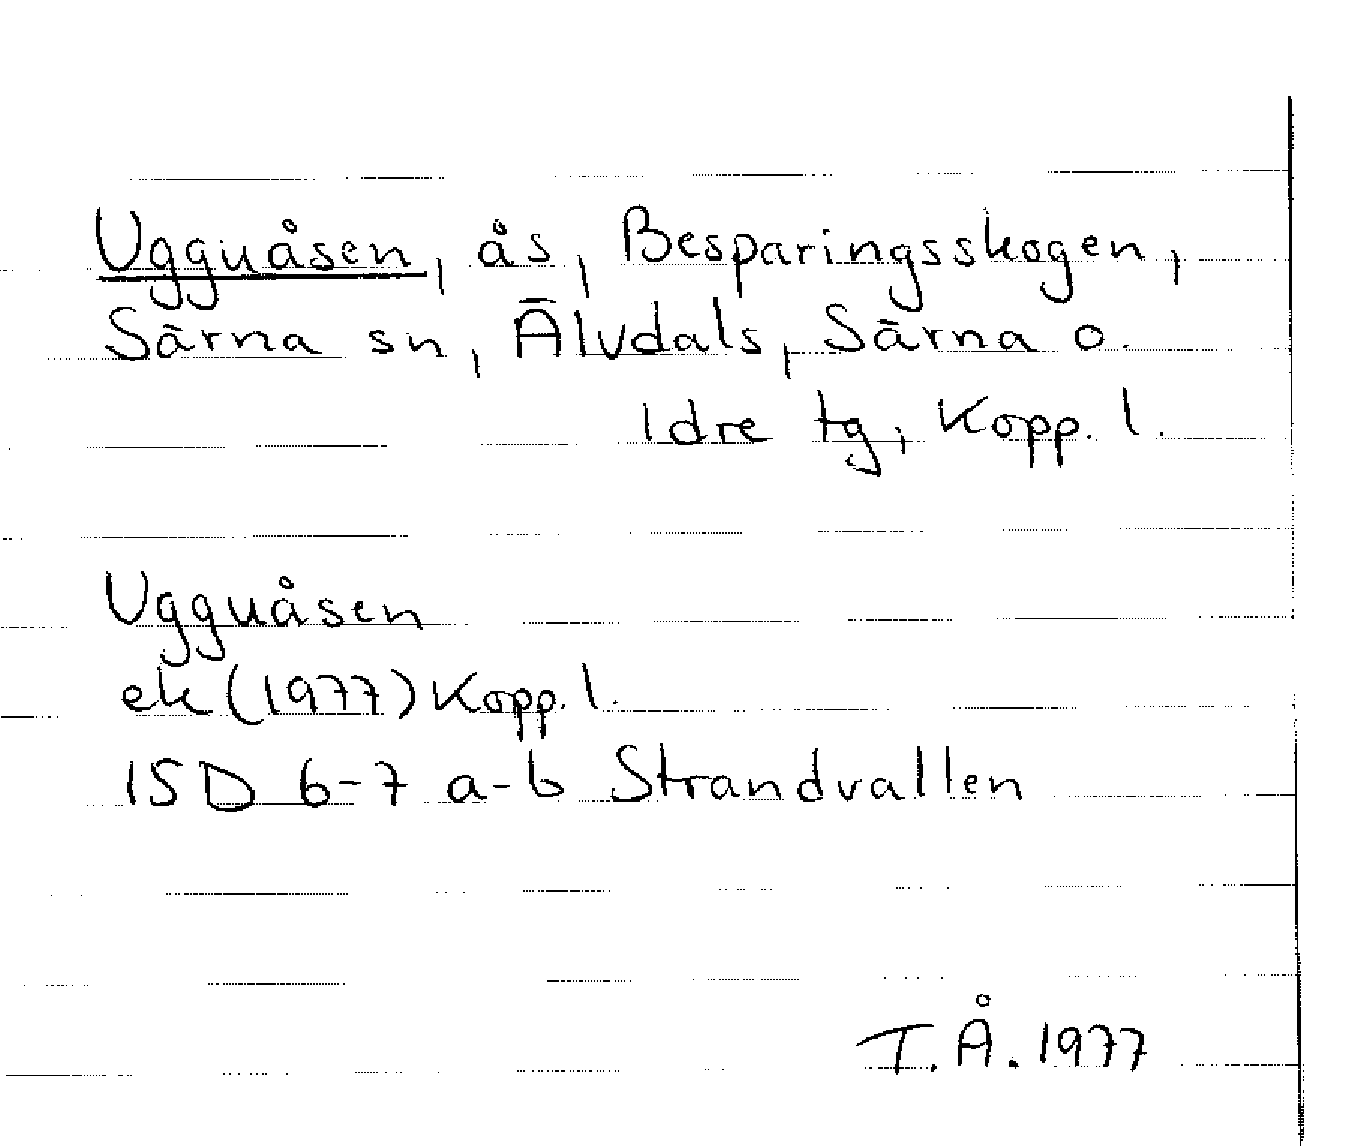 Ugguåsen, ås, Besparingsskogen,
Särna sn, Älvdals, Särna o.
Idre tg, Kopp. l.
Ugguåsen
ek (1977) Kopp. l.
15D 6-7 a-b Strandvallen
T. Å. 1977